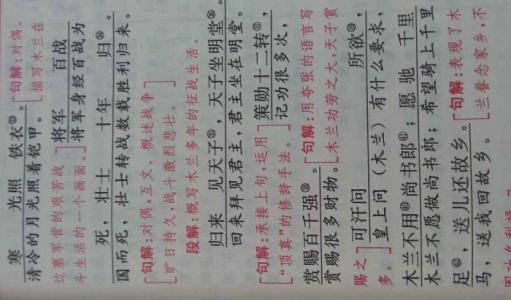 寒 光照 铁衣。[句解:对偶。
清冷的月光照着铠甲。描写木兰在
边塞军营的艰苦战
斗生活的一个画面。] 将军 百战
将军身经百战为
死，壮士 十年 归。
国而死，壮士转战数载胜利归来。
[句解:对偶，互文。概述战争
旷日持久，战斗激烈悲壮。]
段解:概写木兰多年的征战生活。
归来 见天子，天子坐明堂。
回来拜见君主，君主坐在明堂。
[句解:承接上句，运用 策勋十二转，
“顶真”的修辞手法。] 记功很多次，
赏赐百千强。[句解:用夸张的语言写
赏赐很多财物。木兰功劳之大，天子赏
赐之 可汗问 所欲，
多。] 皇上问（木兰）有什么要求，
木兰不用尚书郎；愿 驰 千里
木兰不愿做尚书郎；希望骑上千里
足，送儿还故乡。[句解:表现了木
马，送我回故乡。兰眷念家乡，不